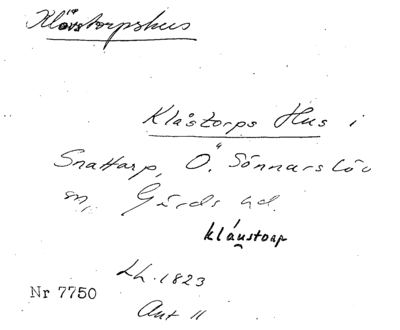 Klåstorpshus
Klåstorps Hus i
Snattarp, Ö. Sönnarslöv
sn, Gärds hd.
kláustorp
Lh. 1823
Nr 7750
Ant 11